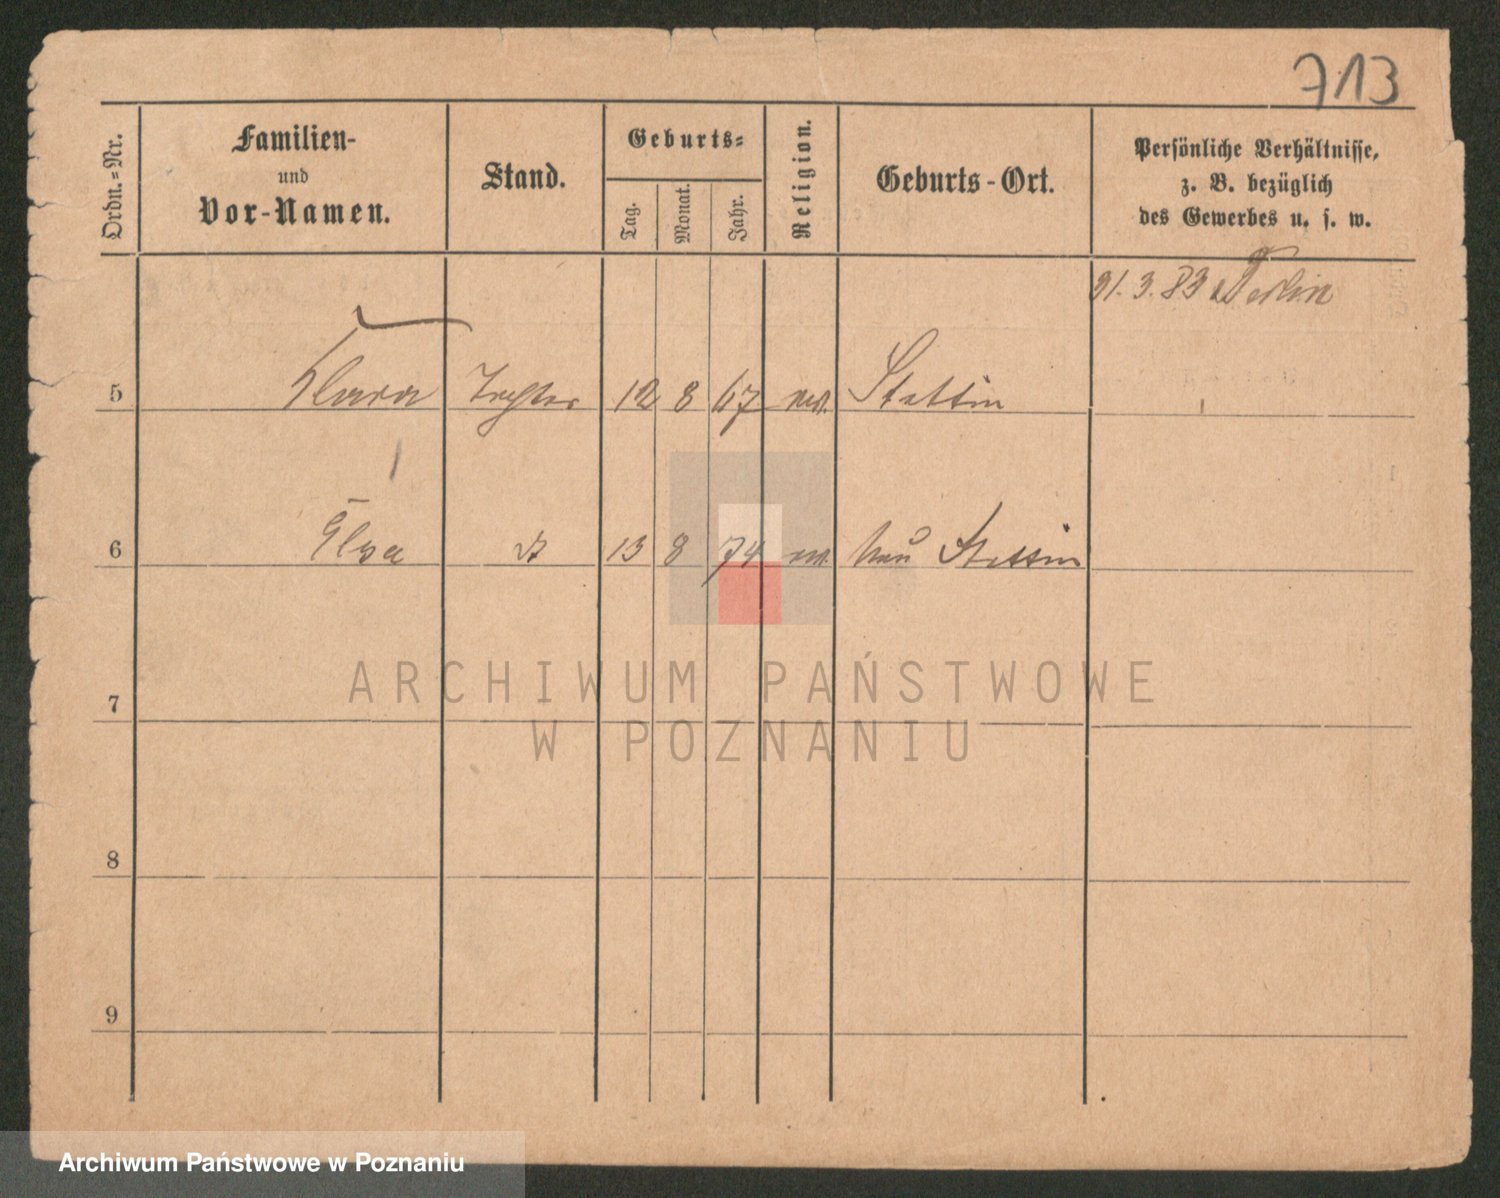 713
Ordn.-Nr.
Familien-
und
Vor-Namen.
Stand.
Geburts-
Tag.
Monat.
Jahr.
Religion.
Geburts-Ort.
Persönliche Verhältnisse,
z. B. bezüglich
des Gewerbes u. s. w.
31. 3. 83 Berlin
5 Clara Tochter 12 8 67 Stettin
6 Elsa 13 8 74 Neu Stettin
7
8
9
ARCHIWUM PAŃSTWOWE
W POZNANIU
Archiwum Państwowe w Poznaniu